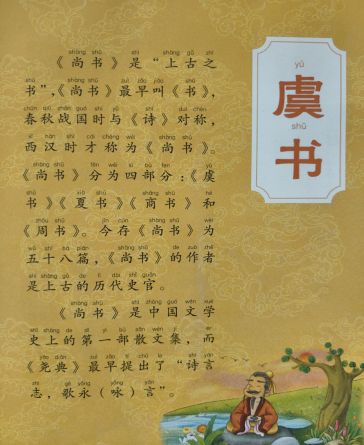 yú
虞
shū
书
《尚书》是“上古之
书”，《尚书》最早叫《书》，
春秋战国时与《诗》对称，
西汉时才称为《尚书》。
《尚书》分为四部分：《虞
书》《夏书》《商书》和
《周书》。今存《尚书》为
五十八篇，《尚书》的作者
是上古的历代史官。
《尚书》是中国文学
史上的第一部散文集，而
《尧典》最早提出了“诗言
志，歌永（咏）言”。